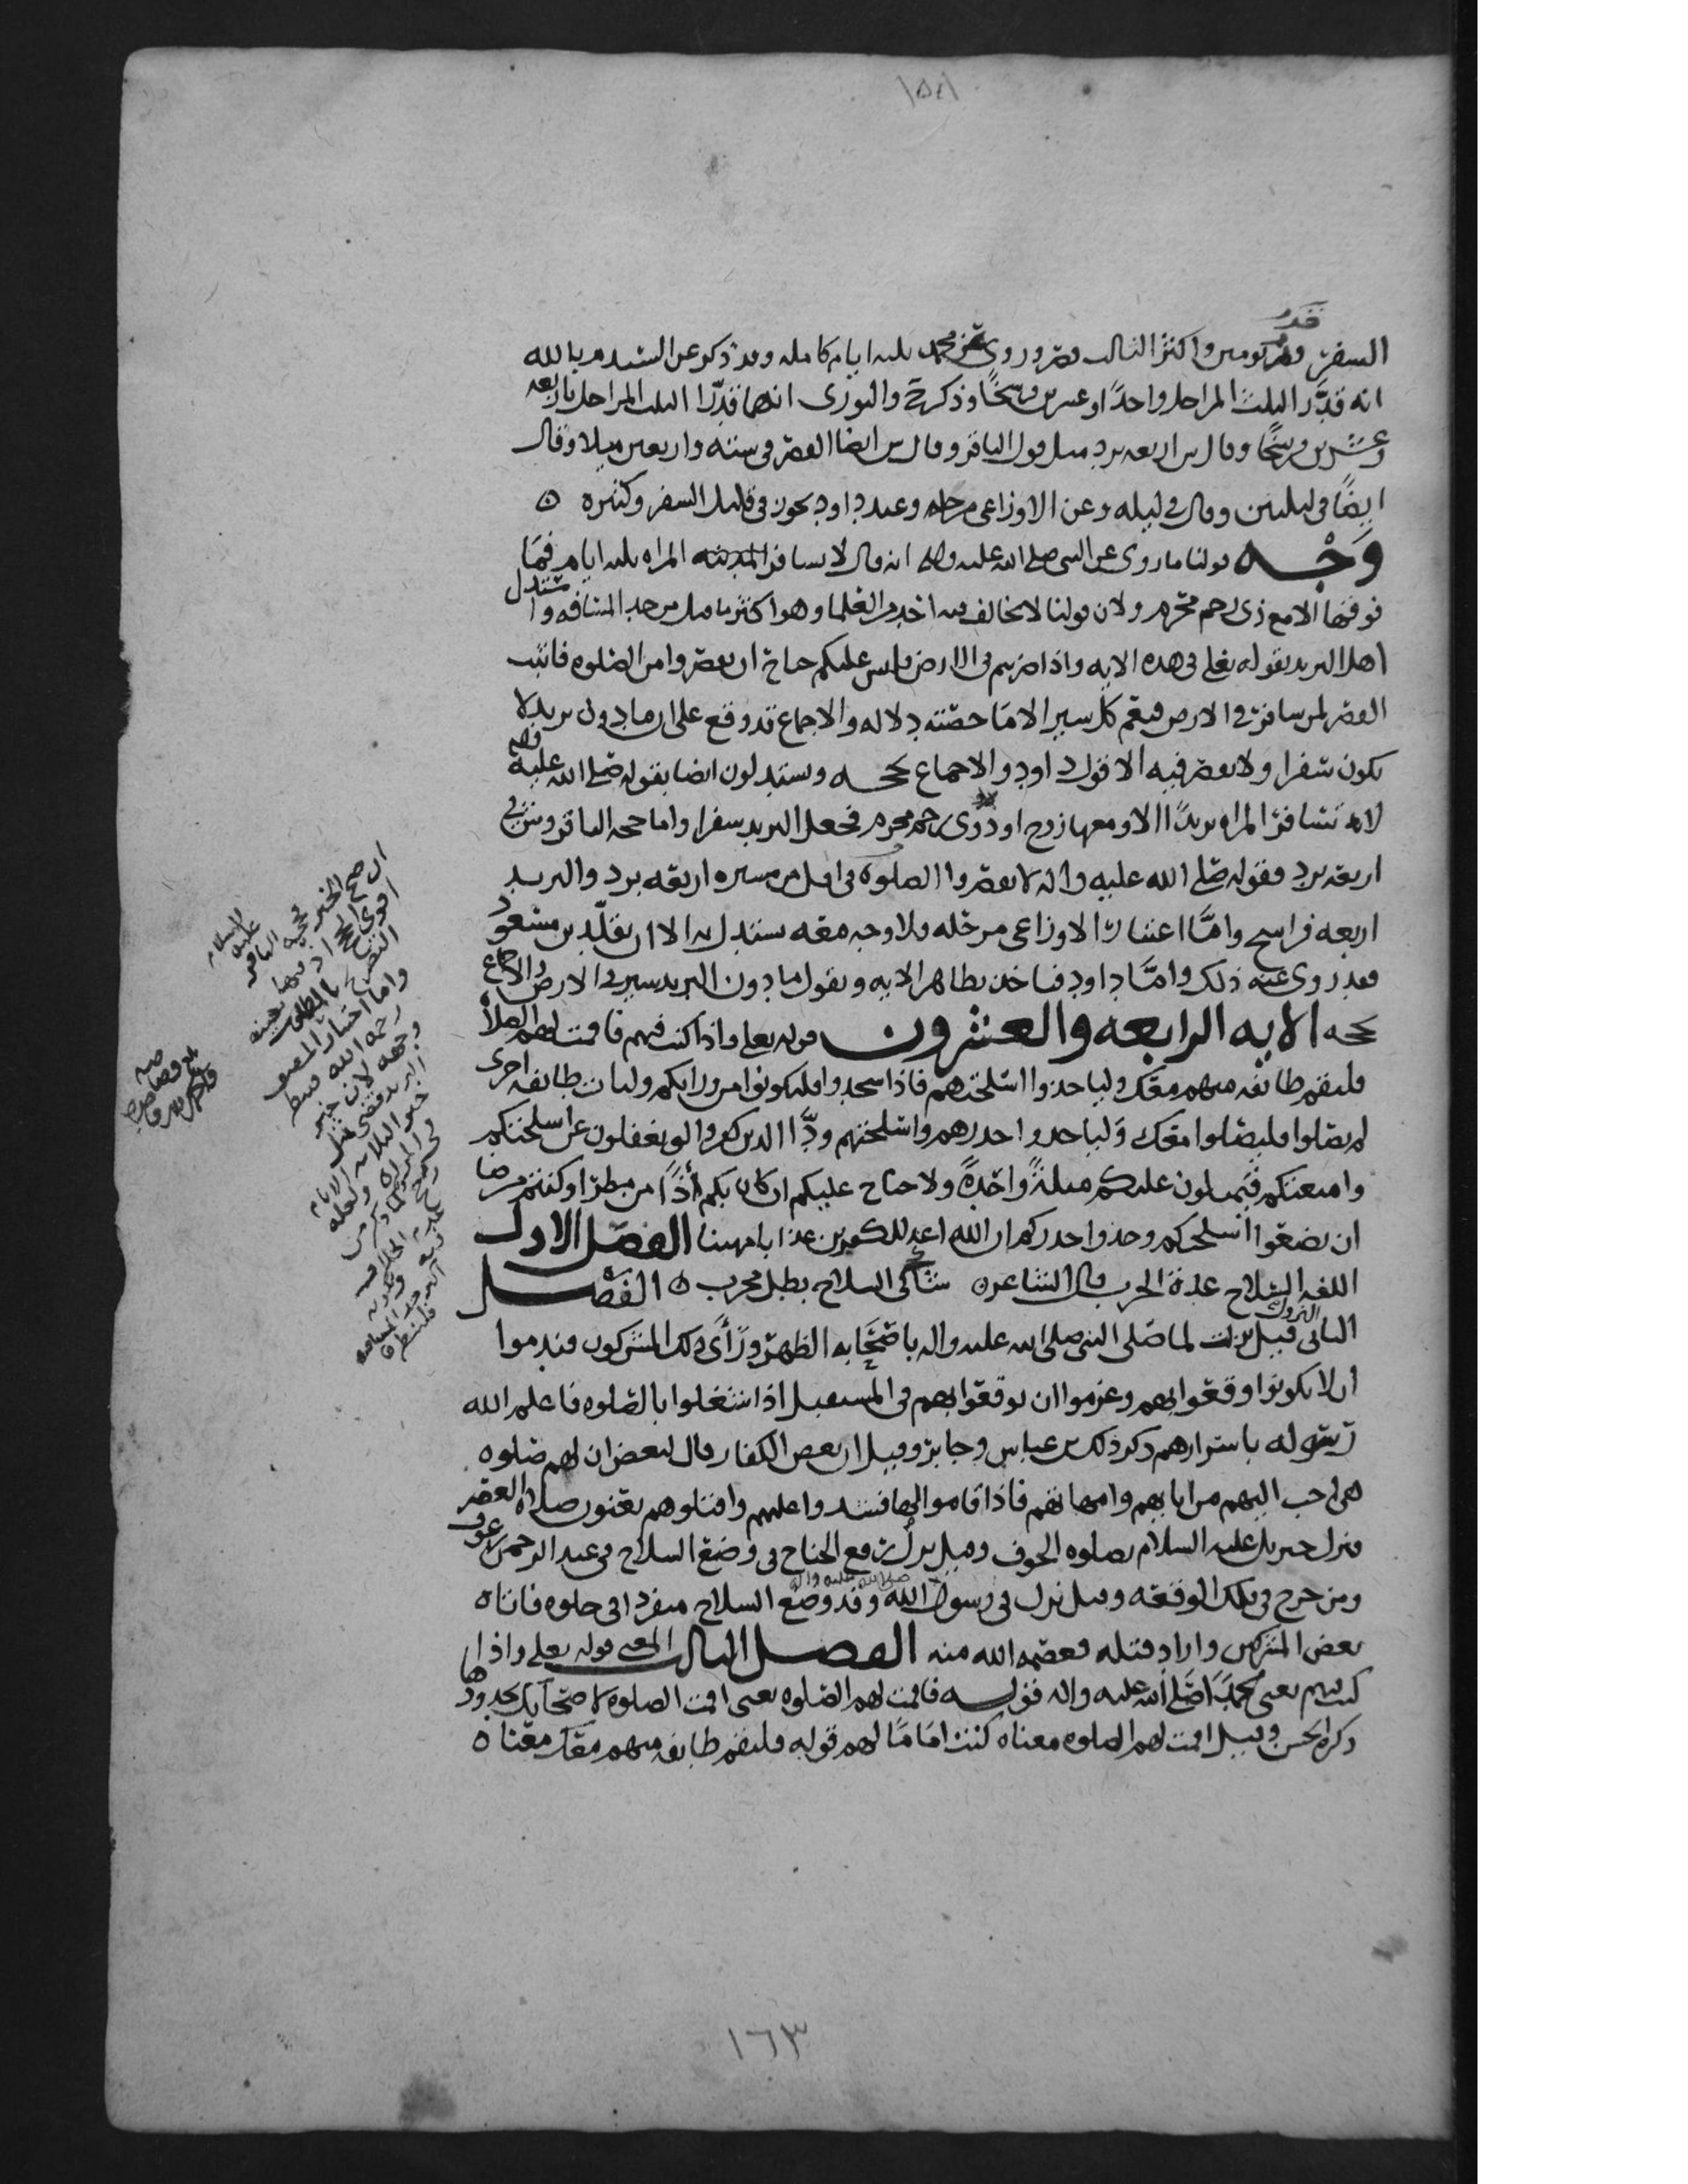 ١٥٨
السفر قدر يومين واكثر الثالث قصر وروى عن محمد ثلثه ايام كامله وقد ذكر عن السيد م بالله
انه قدَّر الثلث المراحل واحدًا وعشرين فرسخًا وذكر والثورى انهما قدَّرا الثلث المراحل باربعه
وعشرين فرسخًا وقال س اربعه برد مثل قول الباقر وقال س ايضا القصر فى سته واربعين ميلا وقال
ايضًا فى ليلتين وقال فى ليله وعن الاوزاعى مرحله وعند داود يجوز فى قليل السفر وكثيره ٥
وَجْــه قولنا ما روى عن النبى صلى الله عليه واله انه قال لا تسافر المراه ثلثه ايام فما
فوقها الا مع ذى رحم محرم ولان قولنا لا يخالف فيه احد من العلما وهو اكثر ما قيل من حد المسافه واستدل
اهل البريد بقوله تعلى فى هذه الايه واذا ضربتم فى الارض فليس عليكم جناح ان تقصروا من الصلوه فاثبت
القصر لمن سافر فى الارض فيعم كل سير الا ما خصته دلاله والاجماع قد وقع على ان ما دون بريد لا
يكون سفرا ولا يقصر فيه الا قول داود والاجماع يحجــه ويستدلون ايضا بقوله صلى الله عليه واله
لا تسافر المراه بريدًا الا ومعها زوج او ذوى رحم محرم فجعل البريد سفرا واما حجه الباقر وس فى
اربعه برد فقوله صلى الله عليه واله لا تقصروا الصلوه فى اقل من مسيره اربعه برد والبريد
اربعه فراسخ وامَّا اعتبار الاوزاعى مرحله فلا وجه معه يستدل به الا ان يقلّد بن مسعود
فقد روى عنه ذلك وامَّا داود فياخذ بظاهر الايه ويقول ما دون البريد سير فى الارض والاجماع
يحجه الايه الرابعه والعشرون قوله تعلى واذا كنت فيهم فاقمت لهم الصلاة
فلتقم طائفه منهم معك ولياخذوا اسلحتهم فاذا سجدوا فليكونوا من ورايكم ولتات طايفه اخرى
لم يصلوا فليصلوا معك وَلياخذوا حذرهم واسلحتهم ودَّ الذين كفروا لو تغفلون عن اسلحتكم
وامتعتكم فيميلون عليكم ميلةً واحدةً ولا جناح عليكم ان كان بكم أذًا من مطر او كنتم مرضا
ان تضعوا اسلحتكم وخذوا حذركم ان الله اعد للكفرين عذابا مهينا الفصل الاول
اللغه السلاح عدة الحرب قال الشاعر ٥ شاكى السلاح بطل مجرب ٥ الفصــل
الثانى النزول قيل نزلت لما صلى النبى صلى الله عليه واله باصحابه الظهر ورَأى ذلك المشركون فندموا
ان لا يكونوا وقعوا بهم وعزموا ان يوقعوا بهم فى المستقبل اذا اشتغلوا بالصلوه فاعلم الله
رسوله باسرارهم ذكر ذلك بن عباس وجابر وقيل ان بعض الكفار قال لبعض ان لهم صلوه
هى احب اليهم من ابايهم وامهاتهم فاذا قاموا اليها فشدوا عليهم واقتلوهم يعنون صلاة العصر
فنزل جبريل عليه السلام بصلوه الخوف وقيل نزلت رفع الجناح فى وضع السلاح فى عبد الرحمن بن عوف
ومن خرج فى تلك الوقعه وقيل نزل فى رسول الله صلى الله عليه واله وقد وضع السلاح منفردا فى خلوه فاتاه
بعض المشركين واراد قتله فعصمه الله منه الفصــل الثالث المعنى قوله تعلى واذا
كنت فيهم يعنى محمدًا صلى الله عليه واله قولــه فاقمت لهم الصلوه يعنى اقمت الصلوه لاصحابك بحدودها
ذكره الحسن وقيل اقمت لهم الصلوه معناه كنت امامًا لهم قوله فلتقم طايفه منهم معك معنا ٥
ان صح الخبر
واما اختيار المصنف
رحمه الله
١٦٣